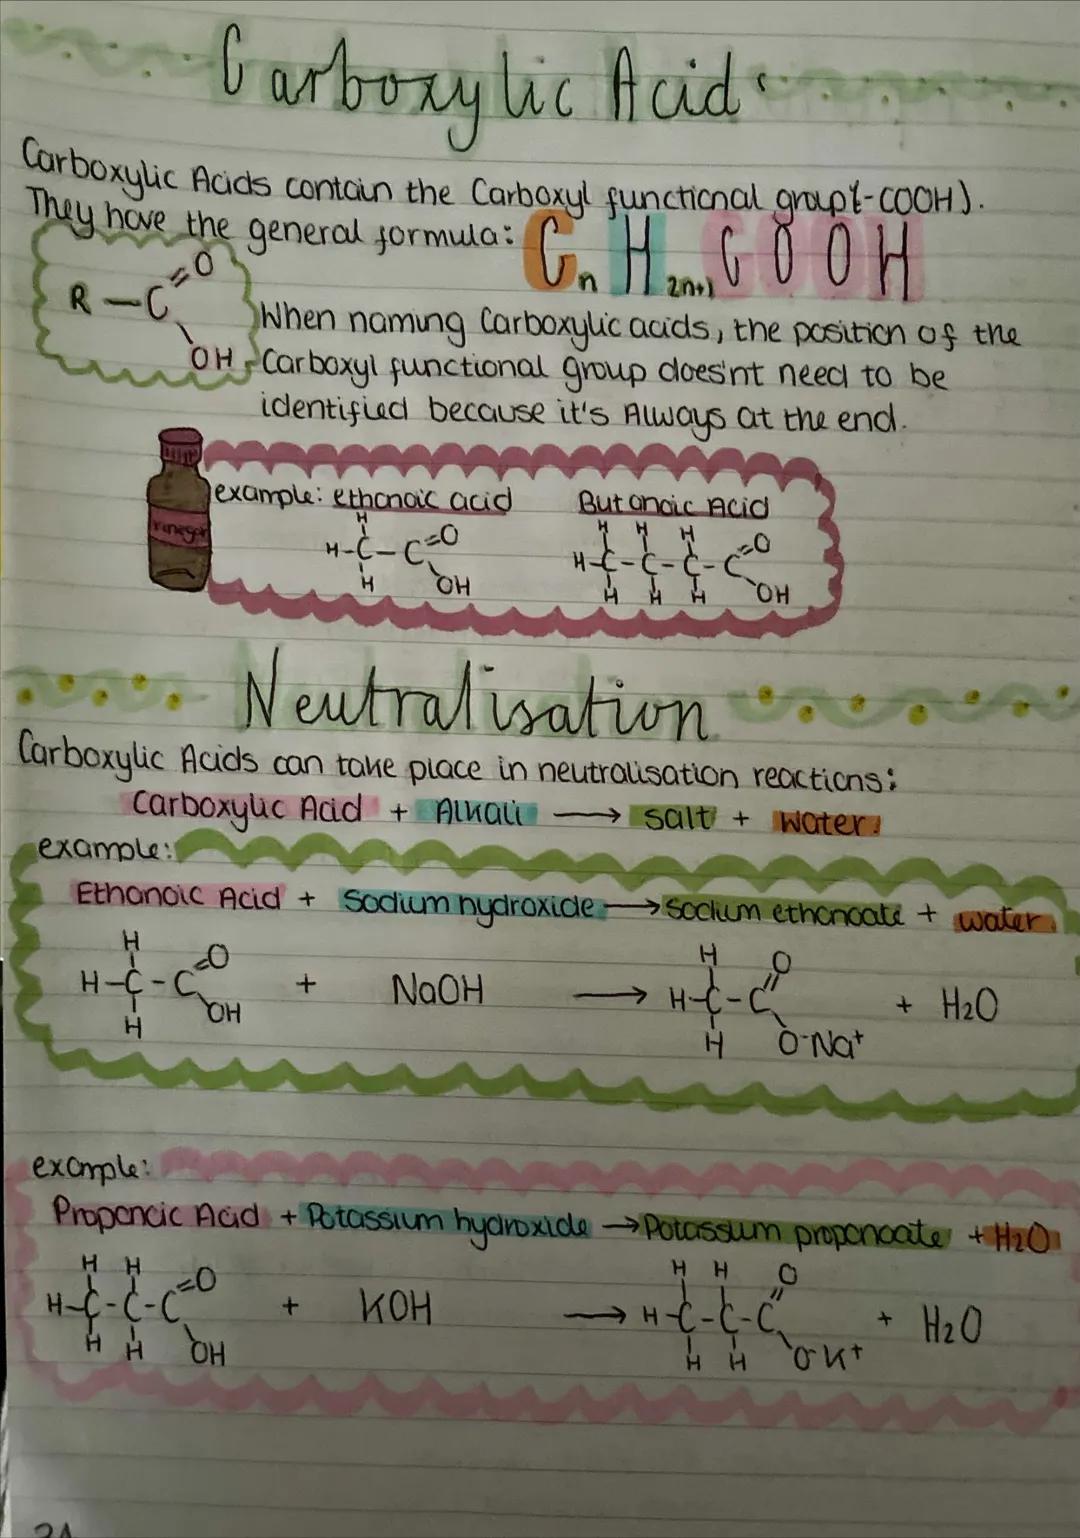 Carboxylic Acids
Carboxylic Acids contain the Carboxyl functional group (-COOH).
They have the general formula: CnH2n+1COOH
R-C=O
OH
When naming Carboxylic acids, the position of the
Carboxyl functional group does'nt need to be
identified because it's Always at the end.
vinegar
example: ethanoic acid Butanoic Acid
H H H H
H-C-C=O H-C-C-C-C=O
H OH H H H OH
Neutralisation
Carboxylic Acids can take place in neutralisation reactions:
Carboxylic Acid + Alkali → salt + water.
example:
Ethanoic Acid + Sodium hydroxide → Sodium ethanoate + water.
H H O
H-C-C=O + NaOH → H-C-C + H2O
H OH H O-Na+
example:
Propanoic Acid + Potassium hydroxide → Potassium propanoate + H2O
H H H H O
H-C-C-C=O + KOH → H-C-C-C + H2O
H H OH H H O-K+